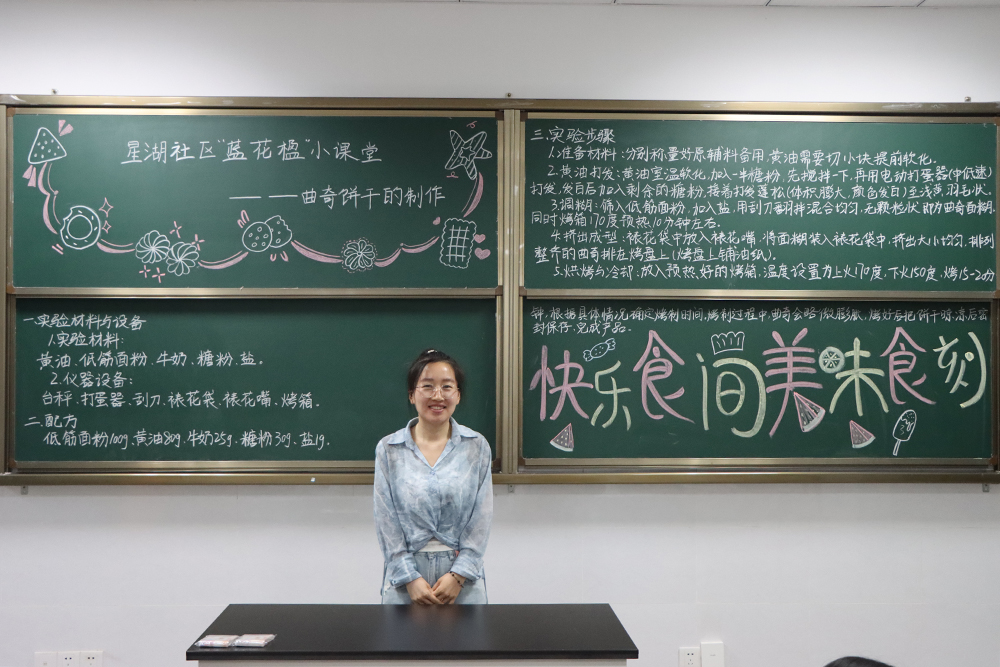 星湖社区"蓝花楹"小课堂
——曲奇饼干的制作
一.实验材料与设备
1.实验材料:
黄油、低筋面粉、牛奶、糖粉、盐。
2.仪器设备:
台秤、打蛋器、刮刀、裱花袋、裱花嘴、烤箱。
二.配方
低筋面粉100g、黄油80g、牛奶25g、糖粉30g、盐1g.
三.实验步骤
1.准备材料:分别称量好原辅料备用,黄油需要切小块提前软化.
2.黄油打发:黄油室温软化,加入一半糖粉,先搅拌一下,再用电动打蛋器(中低速)
打发,发白后加入剩余的糖粉,接着打发蓬松(体积膨大,颜色发白)至浅黄,羽毛状.
3.调糊:筛入低筋面粉,加入盐,用刮刀翻拌混合均匀,无颗粒状即为曲奇面糊,
同时烤箱170度预热10分钟左右.
4.挤出成型:裱花袋中放入裱花嘴,将面糊装入裱花袋中,挤出大小均匀,排列
整齐的曲奇排在烤盘上(烤盘上铺油纸).
5.烘烤与冷却:放入预热好的烤箱,温度设置为上火170度,下火150度,烤15-20分
钟,根据具体情况,确定烤制时间,烤制过程中,曲奇会略微膨胀,烤好后把饼干晾凉后密
封保存,完成产品.
快乐食间美味食刻